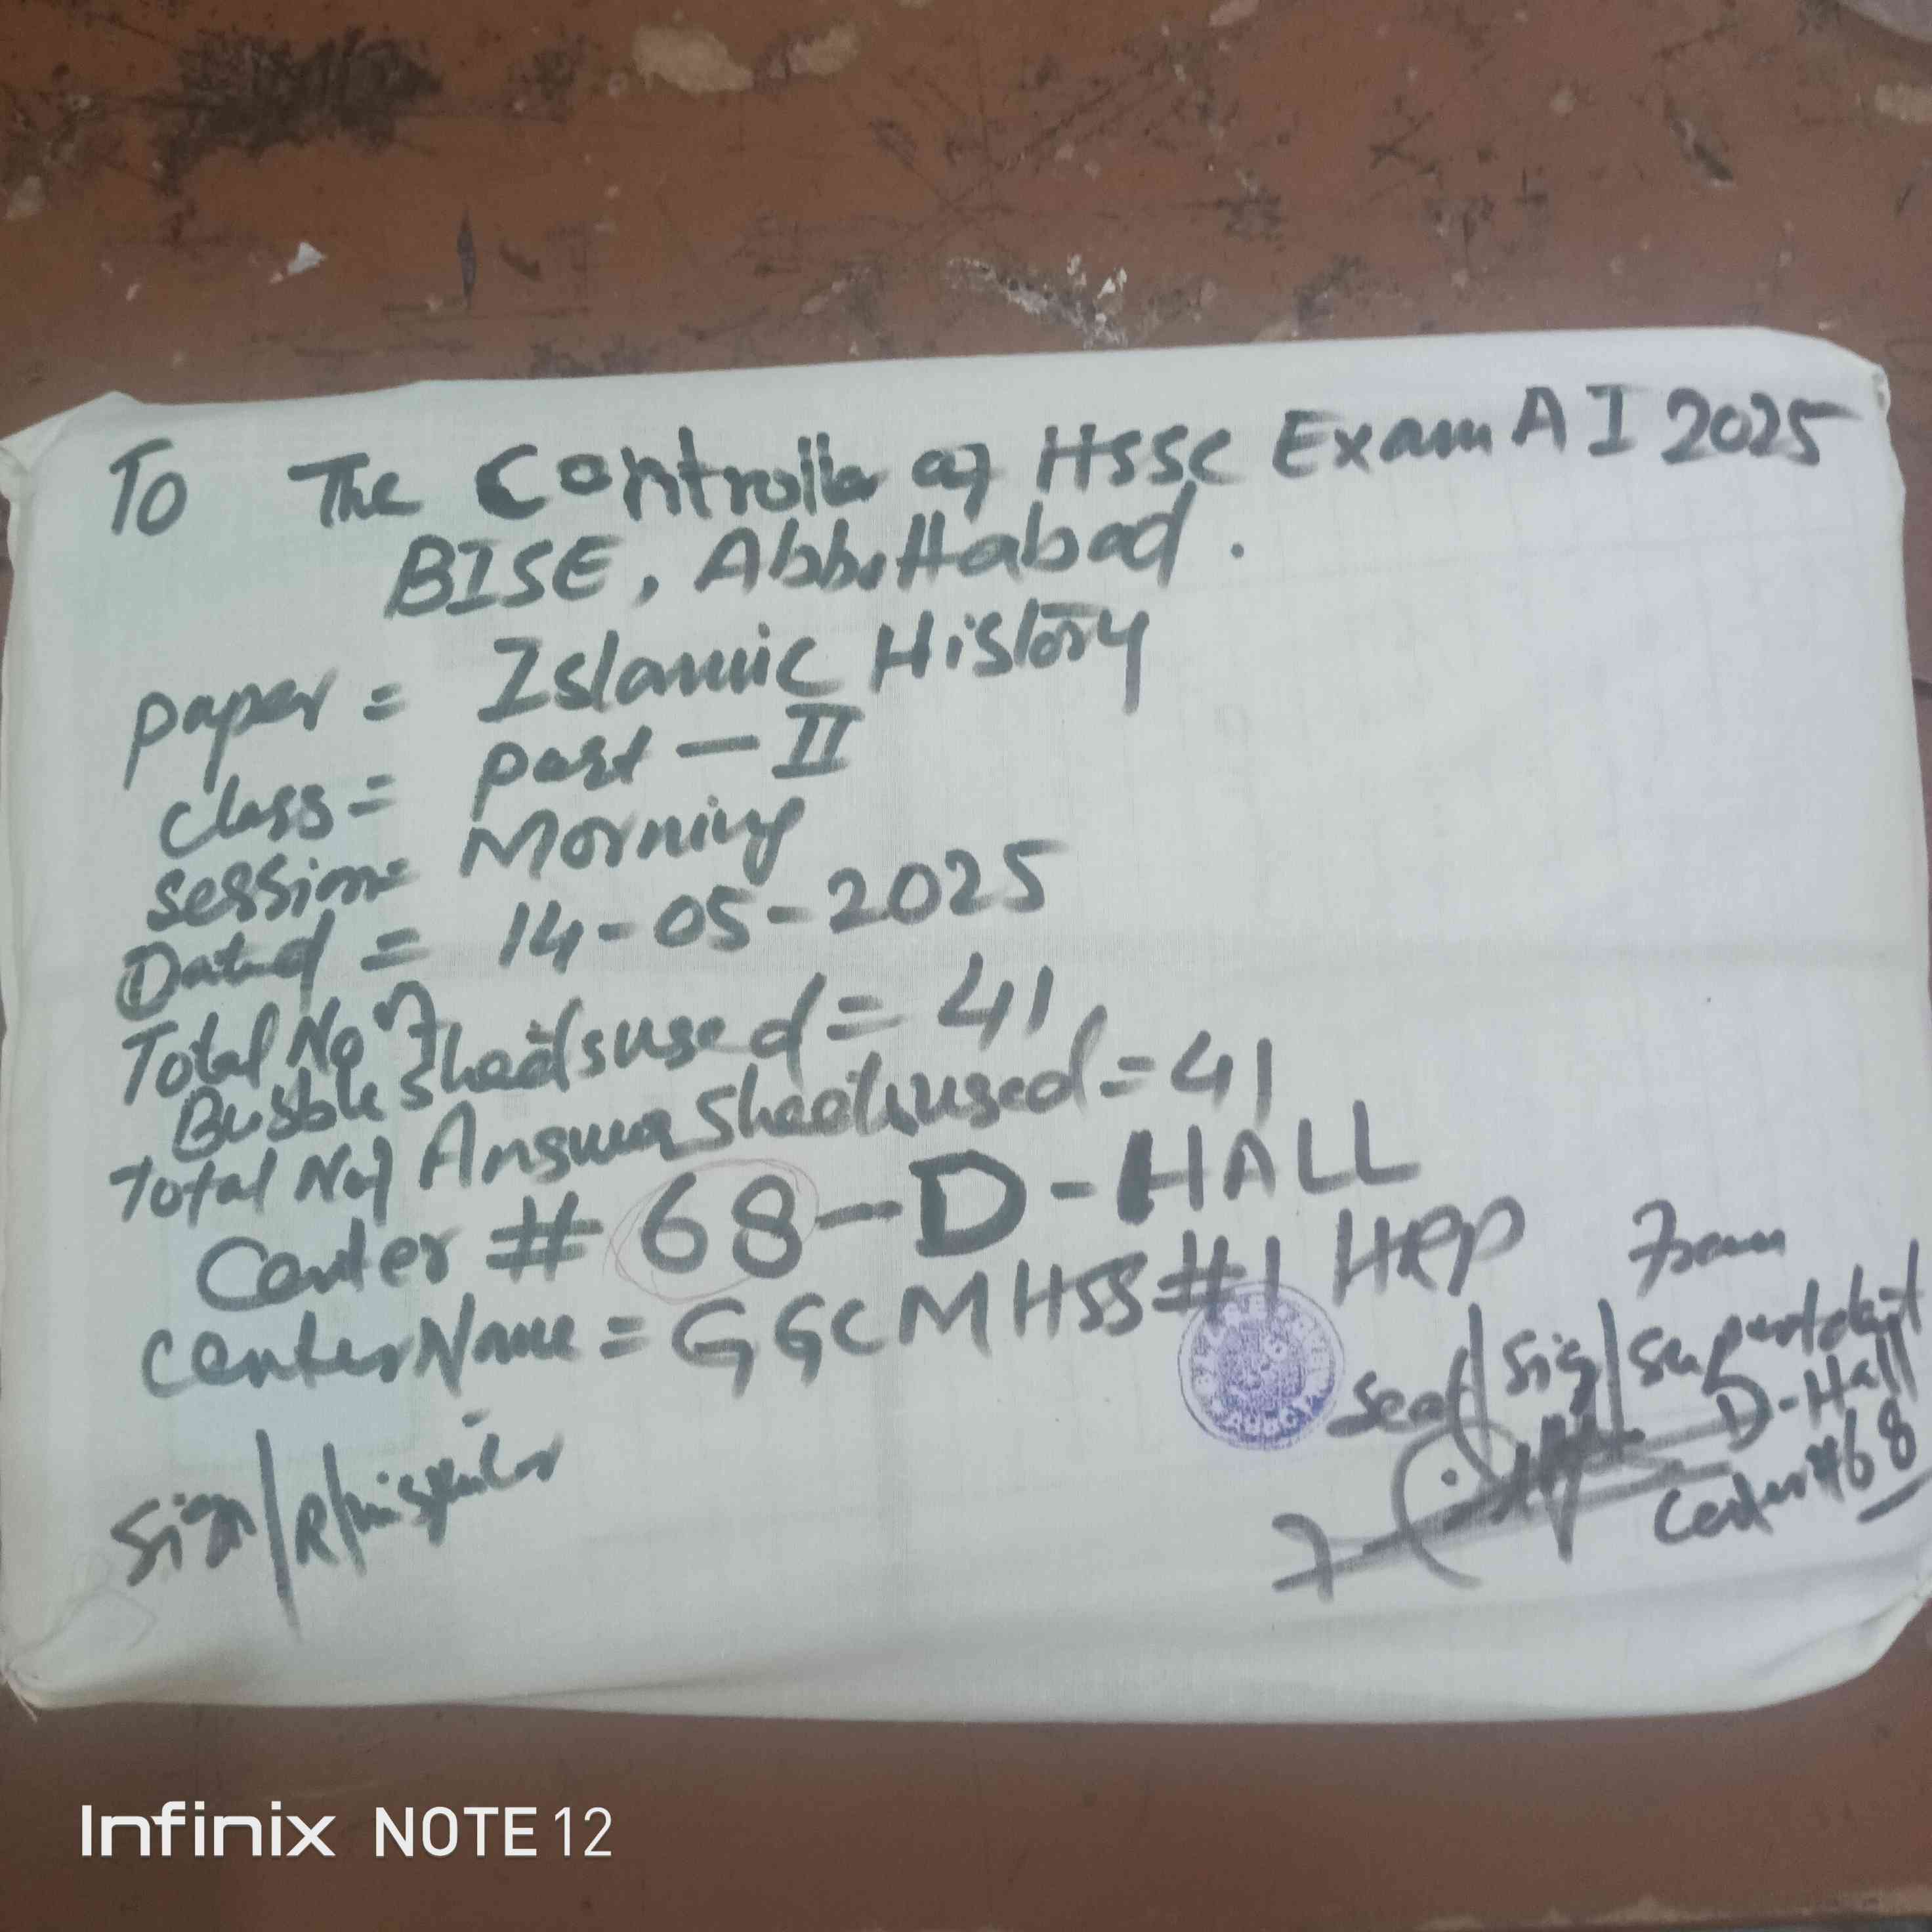 To The Controller of HSSC Exam A I 2025
BISE, Abbottabad.
paper = Islamic History
class = part - II
session = Morning
Dated = 14-05-2025
Total No of
Bubble Sheets used = 41
Total No of Answer Sheets used = 41
Center # 68 - D - HALL
Center Name = GGCMHSS #1 HRP
From
Seal/Sig/Suptdent
D-Hall
Center #68
Sign/R/inspector
Infinix NOTE 12